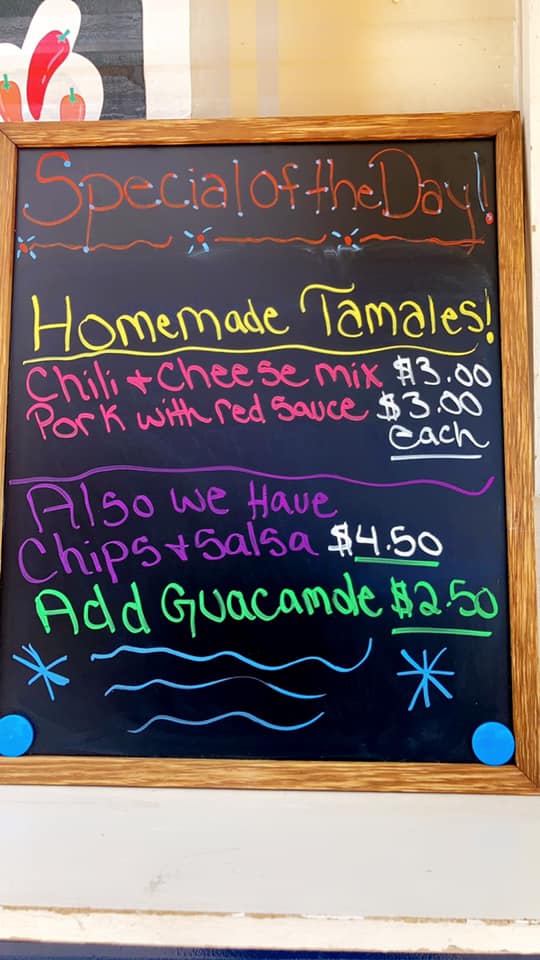 Special of the Day!
Homemade Tamales!
Chili + Cheese mix $3.00
Pork with red sauce $3.00
each
Also we Have
Chips + Salsa $4.50
Add Guacamole $2.50